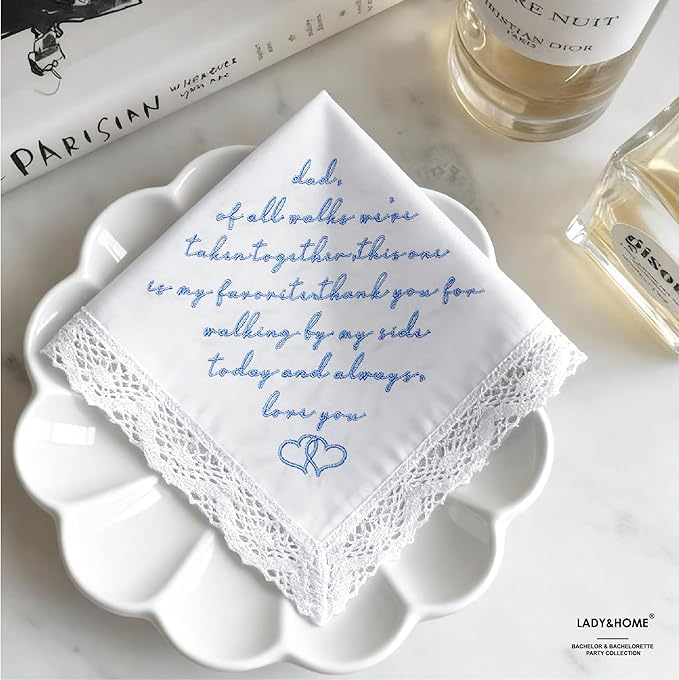 PARISIAN
WHEREVER
YOU ARE
RE NUIT
CHRISTIAN DIOR
PARIS
dad,
of all walks we're
taken together,this one
is my favorite.thank you for
walking by my side
today and always,
love you
LADY&HOME®
BACHELOR & BACHELORETTE
PARTY COLLECTION